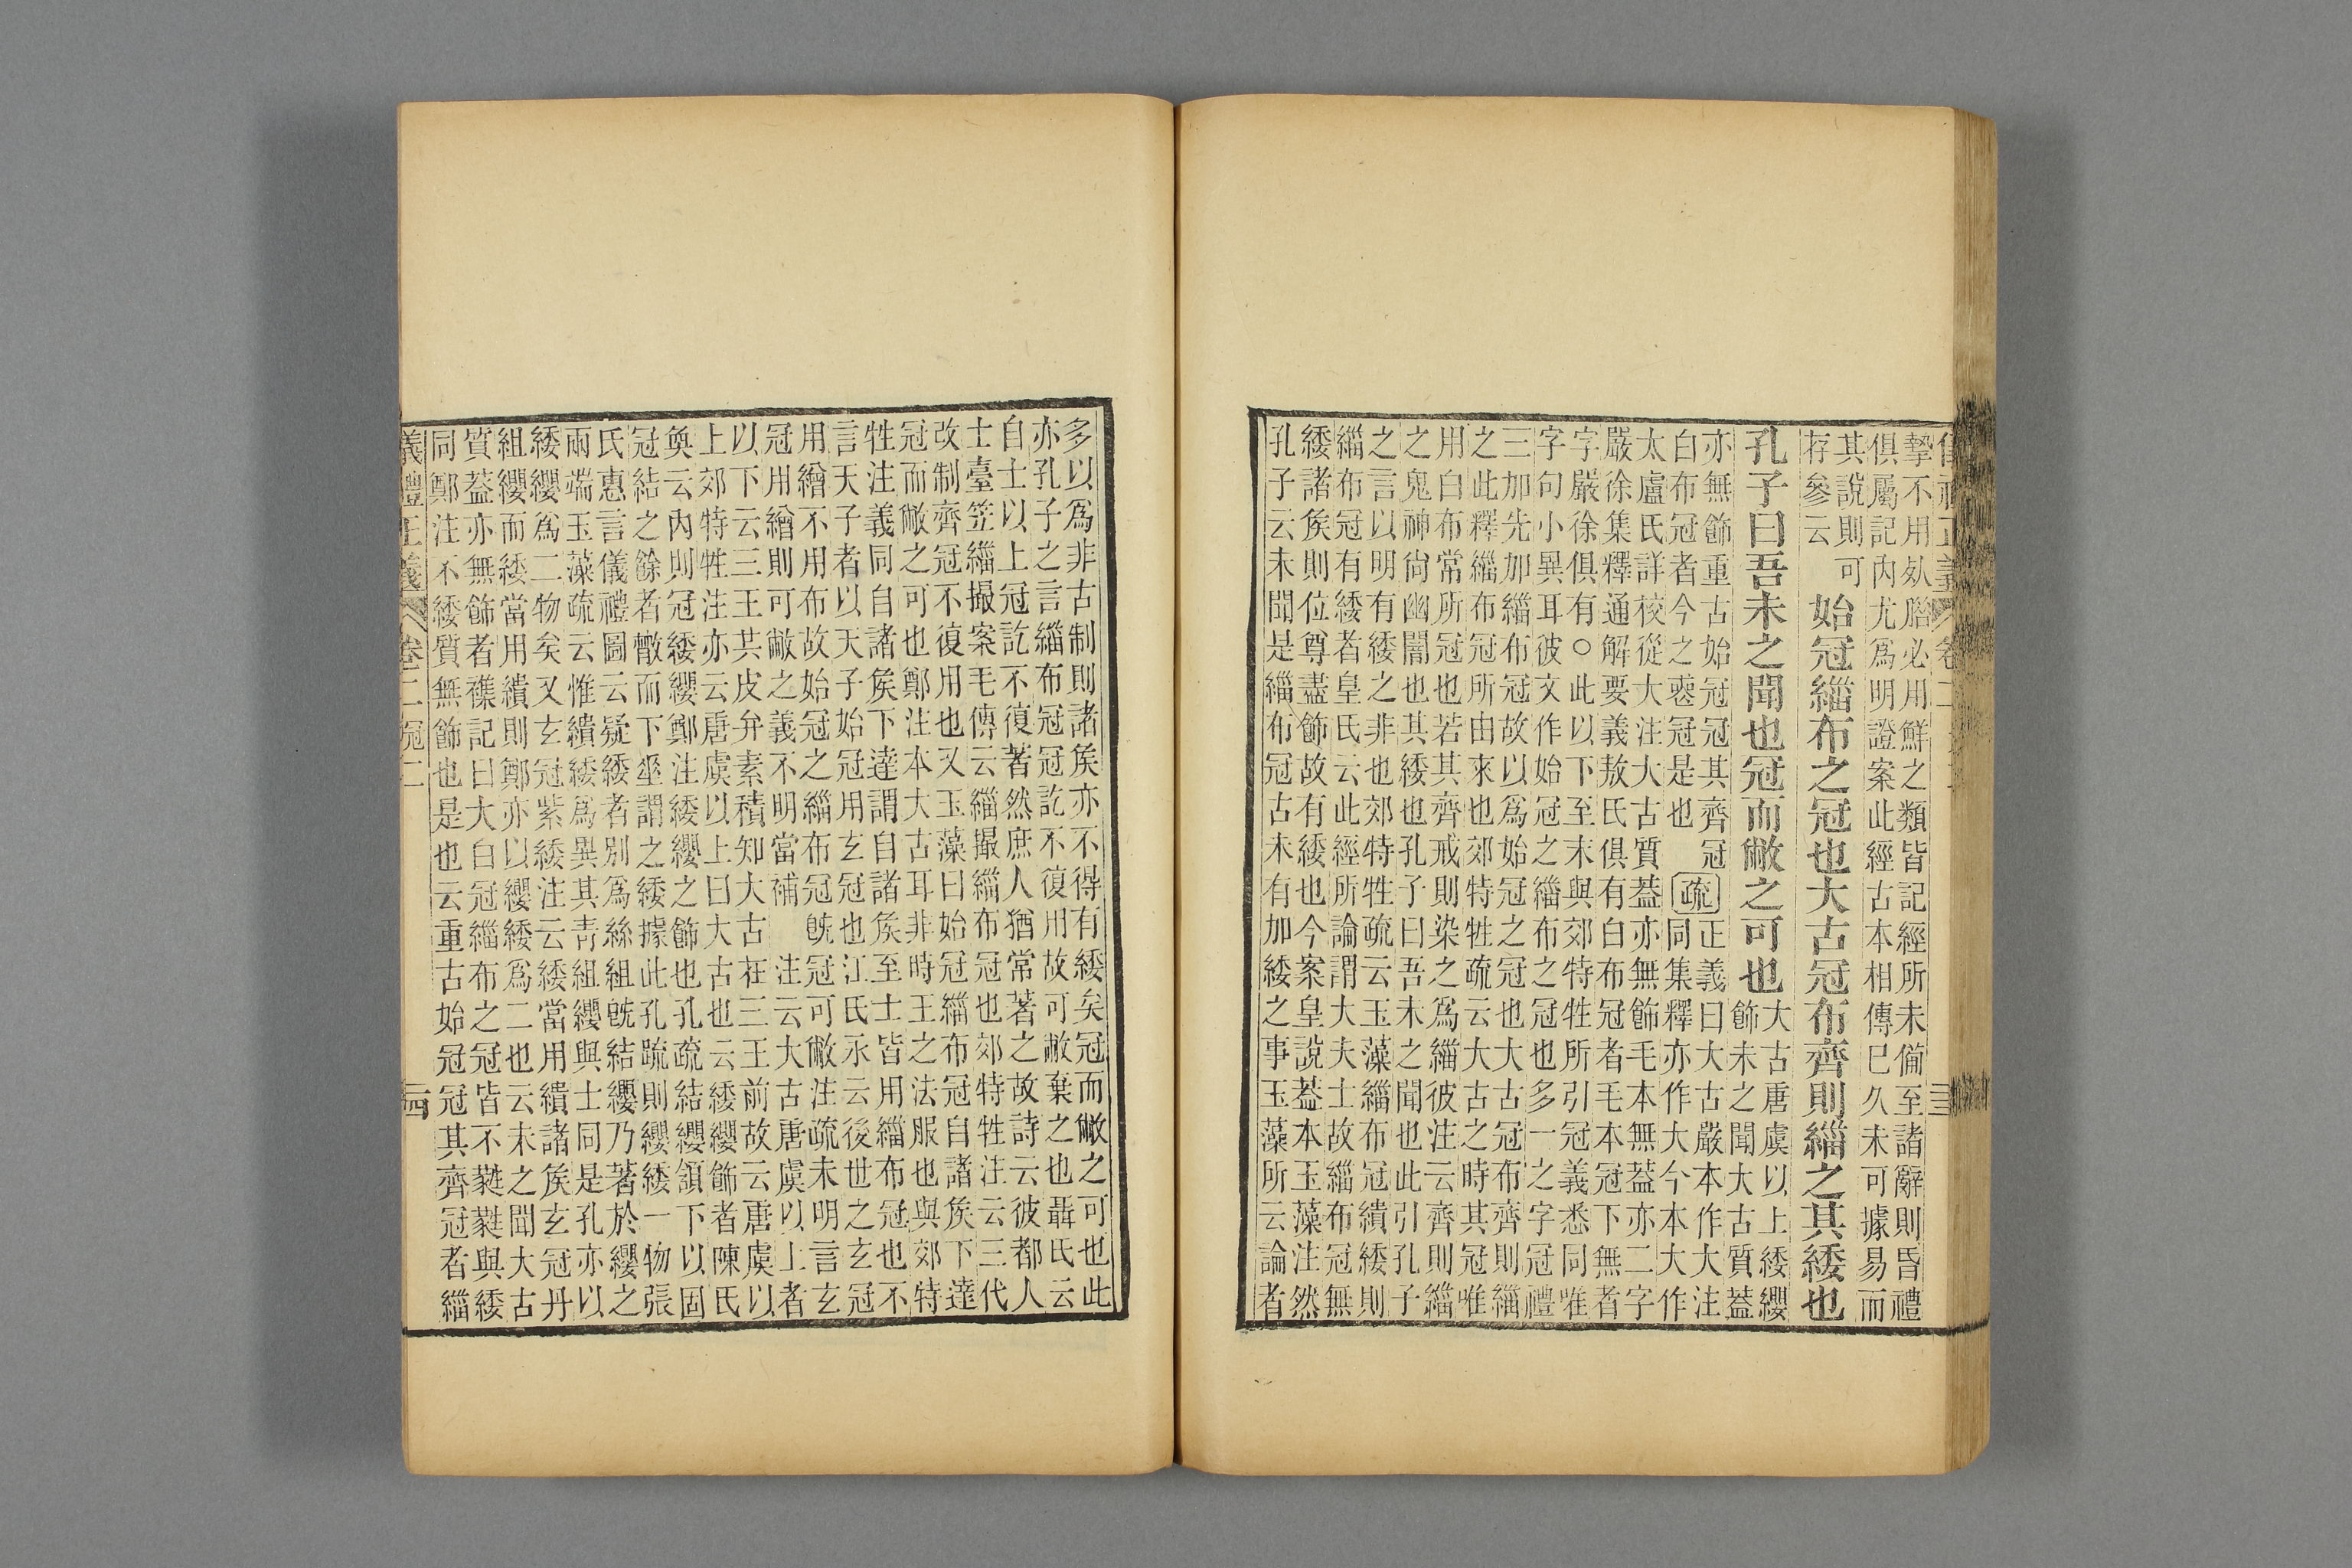 摯不用死腊必用鮮之類皆記經所未備至諸辭則昏禮
俱屬記內尤爲明證案此經古本相傳已久未可據易而
其說則可
存參云
始冠緇布之冠也大古冠布齊則緇之其緌也
孔子曰吾未之聞也冠而敝之可也
大古唐虞以上緌纓
飾未之聞大古質葢
亦無飾重古始冠冠其齊冠
白布冠者今之喪冠是也
疏
正義曰大古嚴本作大注
同集釋亦作大今本大作
太盧氏詳校從大注大古質葢亦無飾毛本無葢亦二字
嚴徐集釋通解要義敖氏俱有白布冠者毛本冠下無者
字嚴徐俱有○此以下至末與郊特牲所引冠義悉同唯
字句小異耳彼文作始冠之緇布之冠也多一之字冠禮
三加先加緇布冠故以爲始冠之冠也大古冠布齊則緇
之此釋緇布冠所由來也郊特牲疏云大古之時其冠唯
用白布常所冠也若其齊戒則染之爲緇彼注云齊則緇
之鬼神尙幽闇也其緌也孔子曰吾未之聞也此引孔子
之言以明有緌之非也郊特牲疏云玉藻緇布冠繢緌則
緇布冠有緌者皇氏云此經所論謂大夫士故緇布冠無
緌諸矦則位尊盡飾故有緌也今案皇說葢本玉藻注然
孔子云未聞是緇布冠古未有加緌之事玉藻所云論者
多以爲非古制則諸矦亦不得有緌矣冠而敝之可也此
亦孔子之言緇布冠冠訖不復用故可敝棄之也聶氏云
自士以上冠訖不復著然庶人猶常著之故詩云彼都人
士臺笠緇撮案毛傳云緇撮緇布冠也郊特牲注云三代
改制齊冠不復用也又玉藻曰始冠緇布冠自諸矦下達
冠而敝之可也鄭注本大古耳非時王之法服也與郊特
牲注義同自諸矦下達謂自諸矦至士皆用緇布冠也不
言天子者以天子始冠用玄冠也江氏永云後世之玄冠
用繒不用布故始冠之緇布冠旣冠可敝注疏未明言玄
冠用繒則可敝之義不明當補 注云大古唐虞以上者
以下云三王共皮弁素積知大古在三王前故云唐虞以
上郊特牲注亦云唐虞以上曰大古也云緌纓飾者陳氏
奐云內則冠緌纓鄭注緌纓之飾也孔疏結纓頷下以固
冠結之餘者㪚而下垂謂之緌據此孔疏則纓緌一物張
氏惠言儀禮圖云疑緌者別爲絲組旣結纓乃著於纓之
兩端玉藻疏云惟繢緌爲異其靑組纓與士同是孔亦以
緌纓爲二物矣又玄冠紫緌注云緌當用繢諸矦玄冠丹
組纓而緌當用繢則鄭亦以纓緌爲二也云未之聞大古
質葢亦無飾者襍記曰大白冠緇布之冠皆不蕤蕤與緌
同鄭注不緌質無飾也是也云重古始冠冠其齊冠者緇
儀禮正義 卷二 冠二